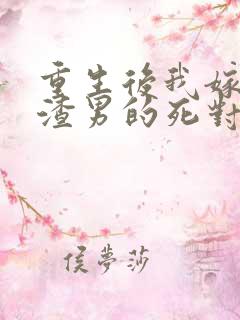 重生後我嫁
渣男的死對
侯夢莎